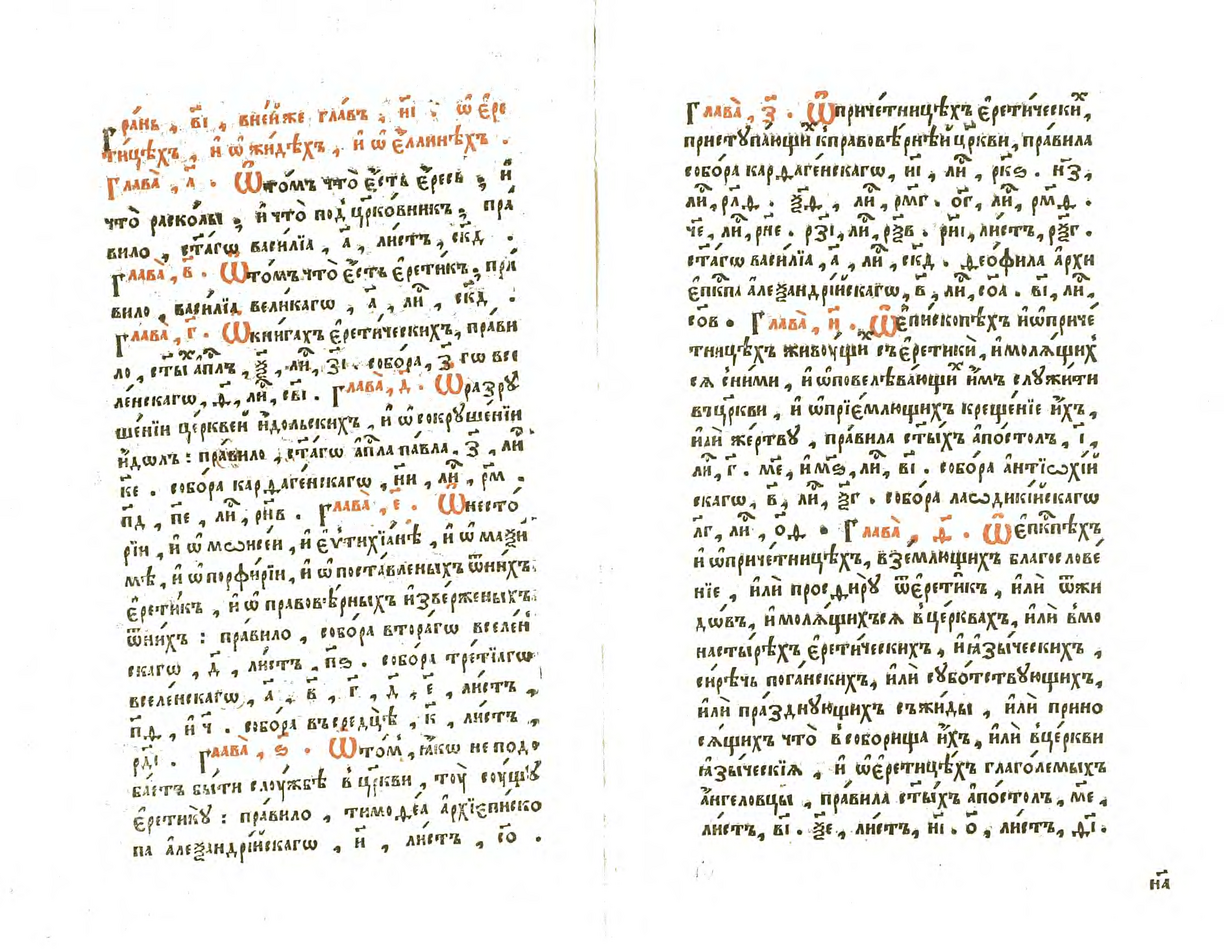 Гра́нь , в҃і , вне́йже гла́въ , и҃і . ѡ҆ є҆ре
ти́цѣхъ , и҆ ѡ҆ жидѣ́хъ , и҆ ѡ҆ є҆́ллинѣхъ .
Глава̀ , а҃ . Ѿ то́мъ что̀ є҆́сть є҆́ресь ; и҆
что̀ раско́лы ; и҆ что̀ под̾црко́вникъ ; пра́
вило , ст҃а́гѡ васи́лїа , а҃ , ли́стъ , ск҃д .
Глава̀ , в҃ . Ѿ то́мъ что̀ є҆́сть є҆рети́къ ; пра́
вило , васи́лїа вели́кагѡ , а҃ , лиⷭ҇ , ск҃д .
Глава̀ , г҃ . Ѿ кни́гахъ є҆рети́ческихъ , пра́ви
ло , ст҃ы́хъ а҆пⷭ҇лъ , ѯ҃ , лиⷭ҇ , з҃і . собо́ра , з҃ гѡ все
ле́нскагѡ , ѳ҃ , лиⷭ҇ , св҃і . Глава̀ , д҃ . Ѿ разрꙋ
ше́нїи це́рквей и҆́дольскихъ , и҆ ѡ҆ сокрꙋше́нїи
и҆́дѡлъ : пра́вило , ст҃а́гѡ а҆пⷭ҇ла па́вла . з҃ , лиⷭ҇
к҃е . собо́ра карѳаге́нскагѡ , н҃и , лиⷭ҇ , р҃м .
п҃д , п҃е , лиⷭ҇ , рн҃в . Глава̀ , є҃ . Ѿ несто́
рїи , и҆ ѡ҆ мѡисе́и , и҆ є҆ѵтихїа́нѣ , и҆ ѡ҆ маѯи́
мѣ , и҆ ѡ҆ порфи́рїи , и҆ ѡ҆ поста́вленыхъ ѿни́хъ
є҆рети́къ , и҆ ѡ҆ правовѣ́рныхъ и҆зве́рженыхъ
ѿни́хъ : пра́вило , собо́ра втора́гѡ вселе́н
скагѡ , д҃ , ли́стъ , п҃ѕ . собо́ра тре́тїагѡ
вселе́нскагѡ , а҃ , в҃ , г҃ , д҃ , є҃ , ли́стъ ,
п҃ѳ , и҆ ч҃ . собо́ра въ сре́дцѣ , к҃ , ли́стъ ,
рд҃і . Глава̀ , ѕ҃ . Ѿ то́м̾ , ꙗ҆́кѡ не подо
ба́етъ бы́ти слꙋ́жбѣ в̾ цр҃кви , тоу̀ сꙋ́щꙋ
є҆рети́кꙋ : пра́вило , тимоѳе́а а҆рхїепи́ско
па а҆леѯандрі́йскагѡ , и҃ , ли́стъ , с҃о .
Глава̀ , з҃ . Ѿ приче́тницѣхъ є҆рети́ческихъ ,
пристꙋпа́ющихъ к̾правовѣ́рнѣй цр҃кви , пра́вила
собо́ра карѳаге́нскагѡ , н҃і , лиⷭ҇ , рк҃ѕ . н҃з ,
лиⷭ҇ , рл҃ѳ . ѯ҃ѳ , лиⷭ҇ , рм҃г . о҃г , лиⷭ҇ , рм҃ѳ .
ч҃е , лиⷭ҇ , рн҃е . рз҃і , лиⷭ҇ , рѯ҃в . рн҃і , ли́стъ , рѯ҃г .
ст҃а́гѡ васи́лїа , а҃ , лиⷭ҇ , ск҃д . ѳео́фила а҆рхи
є҆пⷭ҇кпа а҆леѯандрі́йскагѡ , в҃ , лиⷭ҇ , со҃а . в҃і , лиⷭ҇ ,
со҃в . Глава̀ , и҃ . Ѿ є҆пи́скопѣхъ и҆ ѡ҆ приче́
тницѣхъ живꙋ́щихъ съ є҆ретикѝ , и҆ моля́щихъ
сѧ с ни́ми , и҆ ѡ҆ повелѣва́ющихъ и҆̀мъ слꙋжи́ти
въ цр҃кви , и҆ ѡ҆ прїе́млющихъ креще́нїе и҆́хъ ,
и҆лѝ же́ртвꙋ , пра́вила ст҃ы́хъ а҆по́столъ , і҃ ,
лиⷭ҇ , г҃ . м҃е , и҆ м҃ѕ , лиⷭ҇ , в҃і . собо́ра а҆нтїѡхі́й
скагѡ , в҃ , лиⷭ҇ , ѯ҃г . собо́ра лаѡдикі́йскагѡ
л҃г , лиⷭ҇ , о҃ѳ . Глава̀ , ѳ҃ . Ѿ є҆пⷭ҇кпѣхъ
и҆ ѡ҆ приче́тницѣхъ , в̾зе́млющихъ благослове
нїе , и҆лѝ просѳирꙋ̀ ѿ є҆рети̂къ , и҆лѝ ѿ жи
дѡ́въ , и҆ моля́щихъсѧ в̾ це́рквахъ , и҆лѝ в̾мо
насты́рѣхъ є҆рети́ческихъ , и҆ ꙗ҆зы́ческихъ ,
си́рѣчь пога́нскихъ , и҆лѝ сꙋбо́тствꙋющихъ ,
и҆лѝ пра́зднꙋющихъ съ жиды̀ , и҆лѝ прино
сѧ́щихъ что̀ в̾ собо́рища и҆́хъ , и҆лѝ в̾це́ркви
ꙗ҆зы́ческїѧ , и҆ ѡ҆ є҆рети́цѣхъ глаго́лемыхъ
а҆́нгеловцы , пра́вила ст҃ы́хъ а҆по́столъ , м҃е ,
ли́стъ , в҃і . ѯ҃е , ли́стъ , и҃і . о҃ , ли́стъ , ѳ҃і .
н҃а